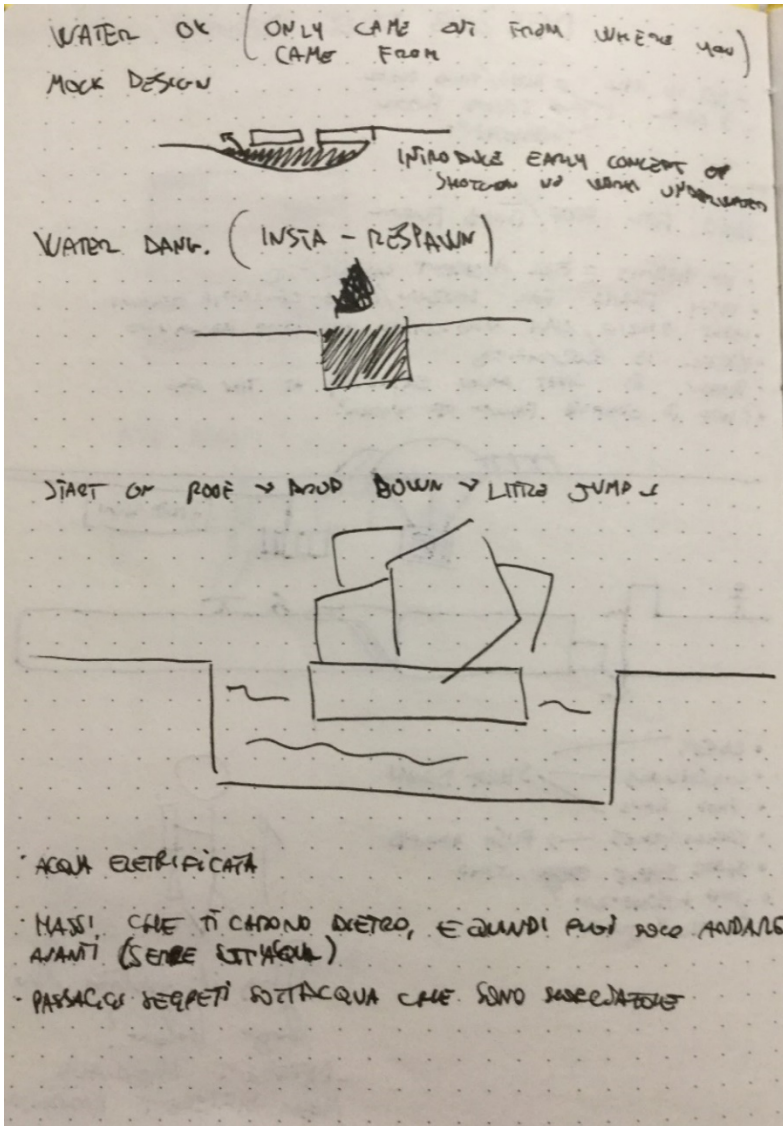 WATER OK (ONLY CAME OUT FROM WHERE YOU
CAME FROM)
MOCK DESIGN
INTRODUCE EARLY CONCEPT OF
SHOTGUN NO WORKS UNDERWATER
WATER DANG. (INSTA-RESPAWN)
START ON → DROP DOWN → LITTLE JUMP
· ACQUA ELETRIFICATA
· MASSI CHE TI CADONO DIETRO, E QUINDI PUOI SOLO ANDARE
AVANTI (SOTT'ACQUA)
· PASSAGGI SEGRETI SOTTACQUA CHE SONO